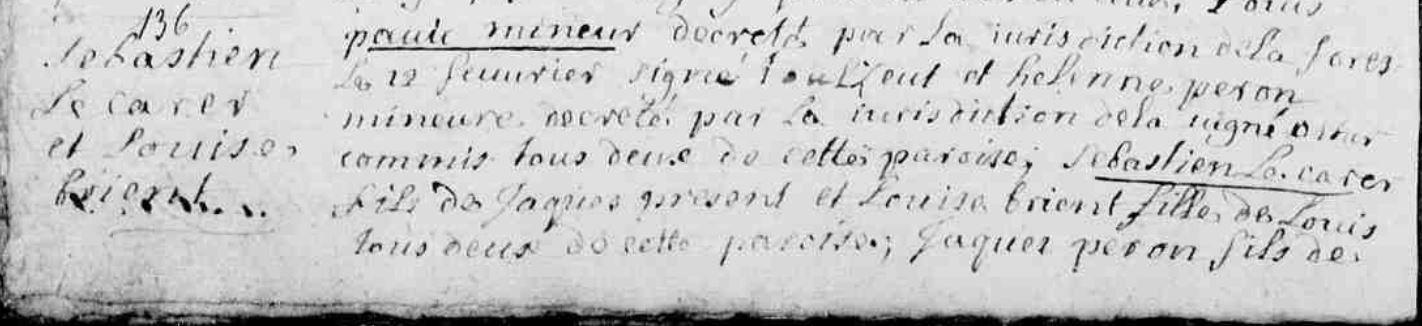 136
Sebastien
Le carer
et Louise
brient
Louis
pauic mineur decreté par la iurisdiction de la fores
Le 12 feuurier signé et helenne peron
mineure decreté par la iurisdiction de la uigné
commis tous deux de cette paroise; Sebastien Le carer
fils de Jaques present et Louise brient fille de Louis
tous deux de cette paroise; Jaques peron fils de